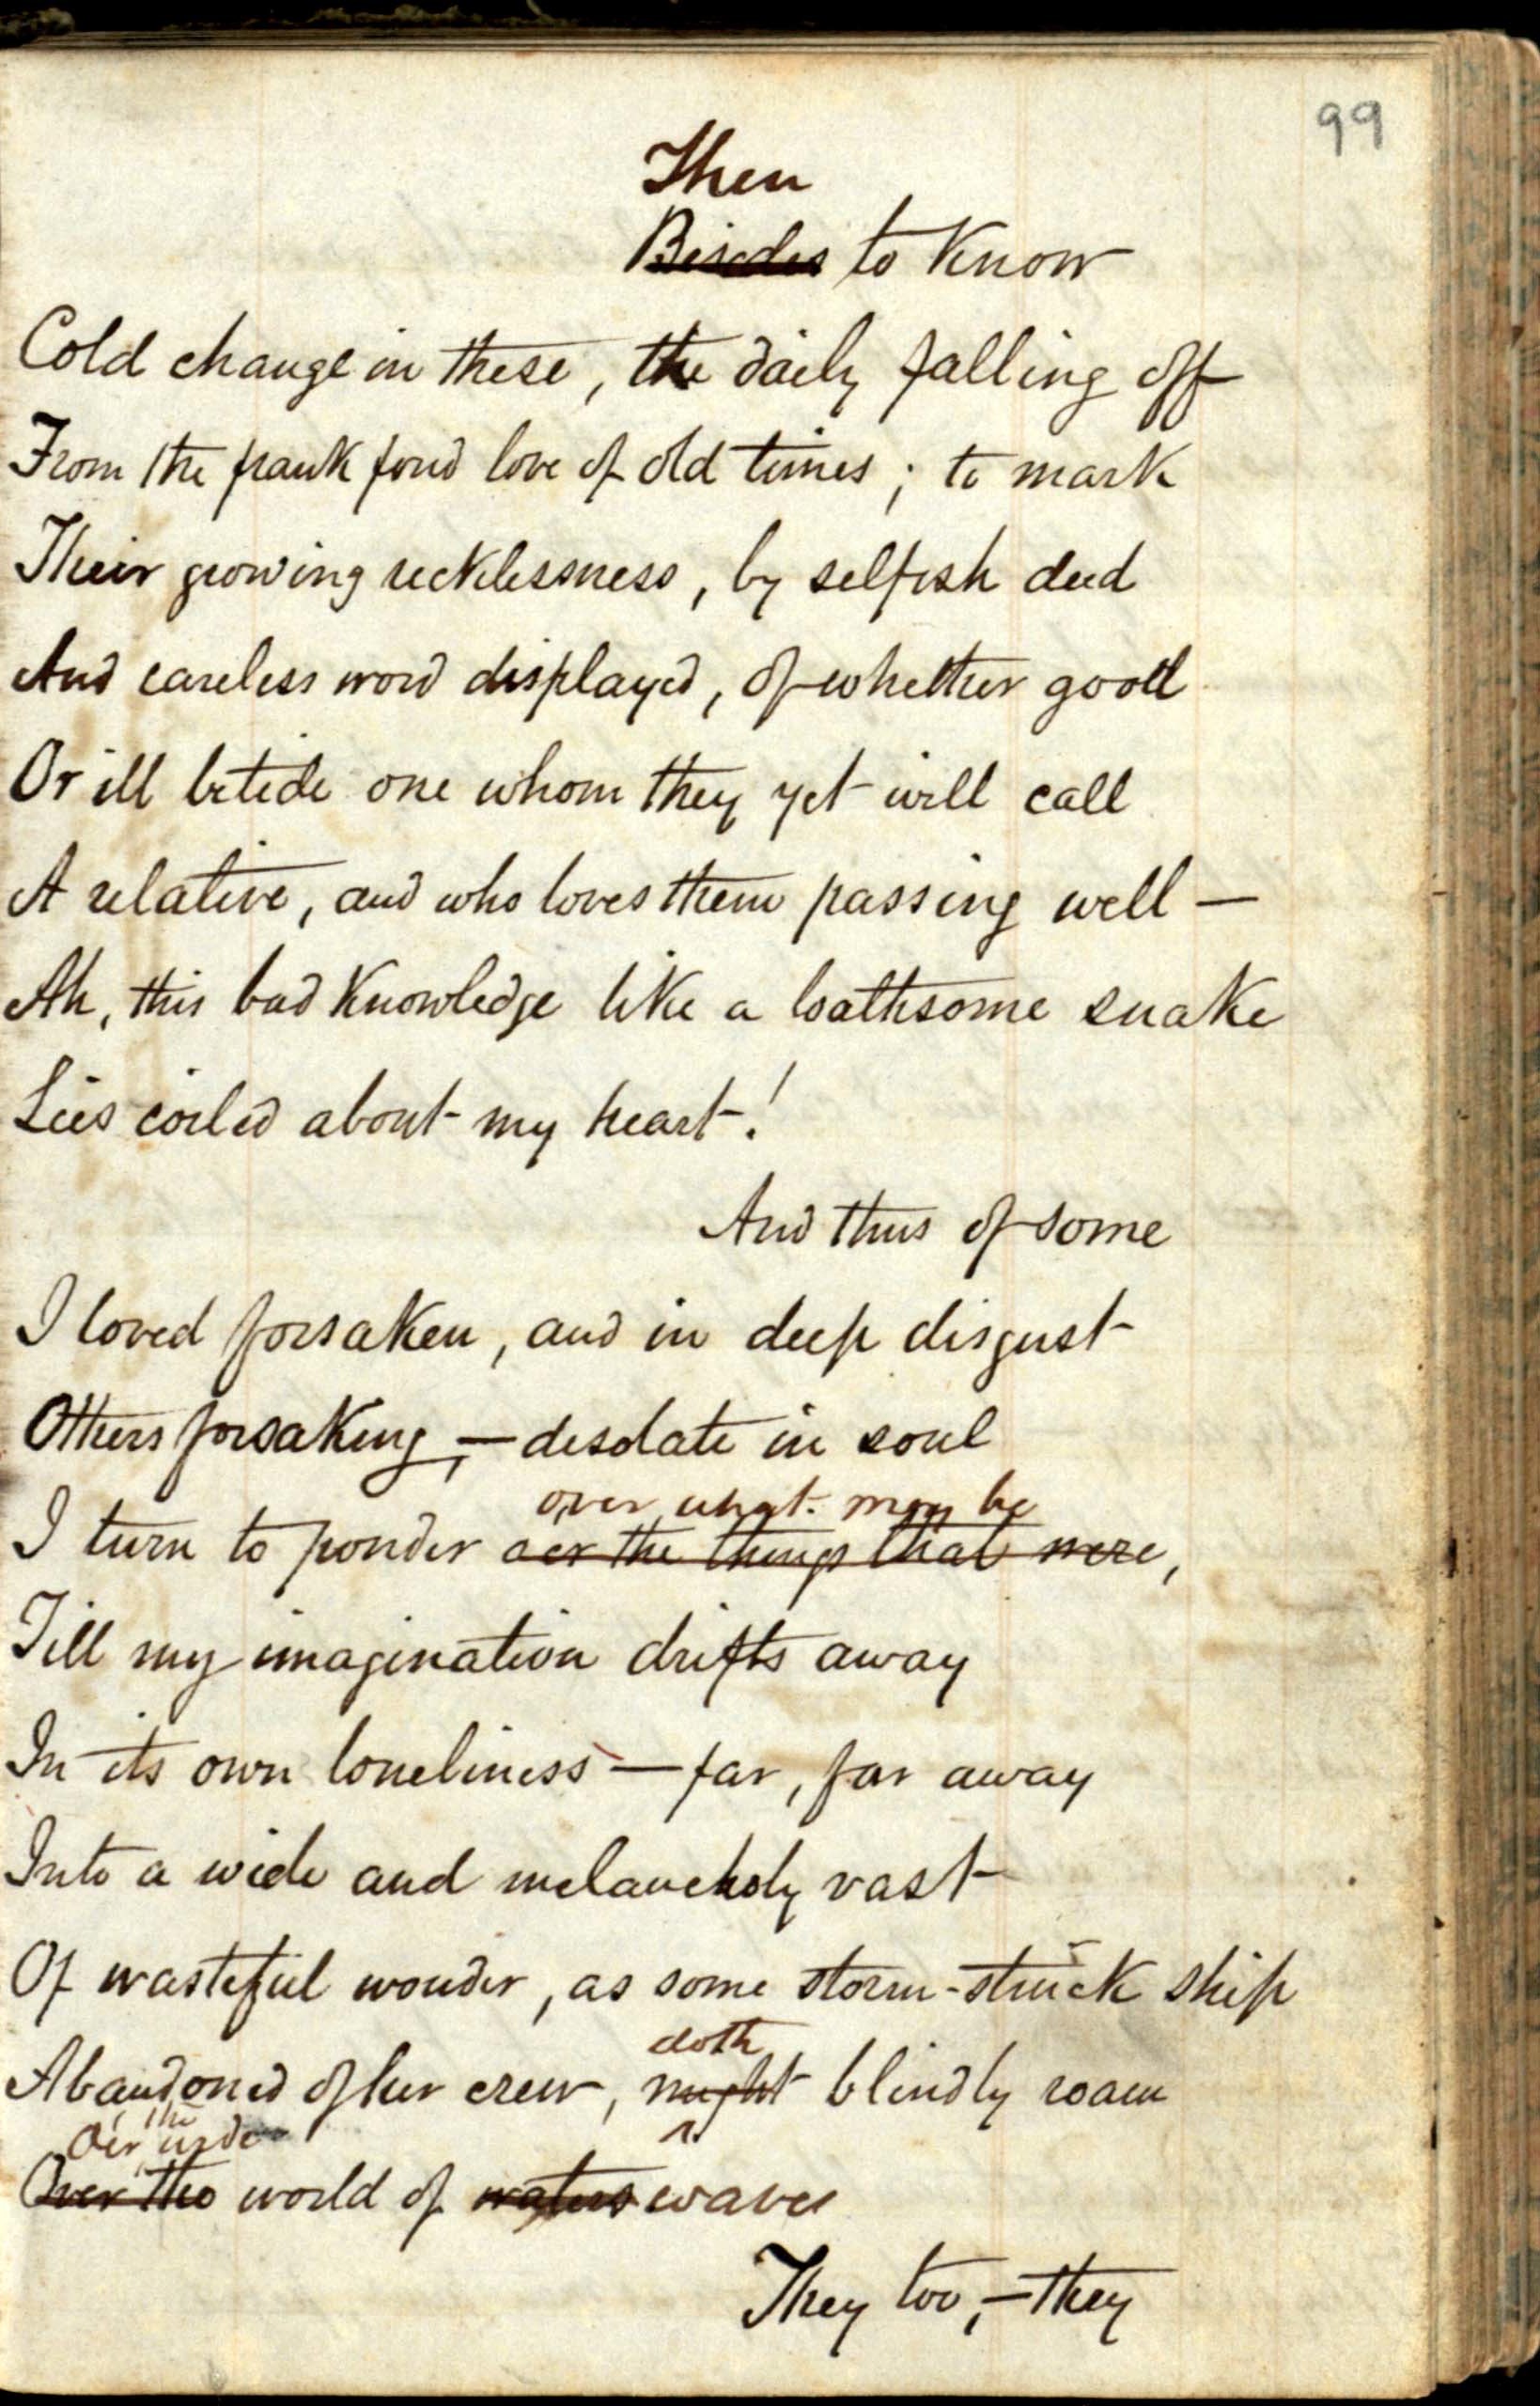 99
Then
Besides to Know
Cold change in these, the daily falling off
From the frank fond love of old times; to mark
Their growing recklessness, by selfish deed
And careless word displayed, of whether good
Or ill betide one whom they yet will call
A relative, and who loves them passing well —
Ah, this bad Knowledge like a loathsome snake
Lies coiled about my heart!
And thus of some
I loved forsaken, and in deep disgust
Others forsaking, — desolate in soul
over what may be
I turn to ponder oer the things that were,
Till my imagination drifts away
In its own loneliness — far, far away
Into a wide and melancholy vast
Of wasteful wonder, as some storm-struck ship
doth
Abandoned of her crew, might blindly roam
Oer the wide
Over the world of waters waves
They too, — they